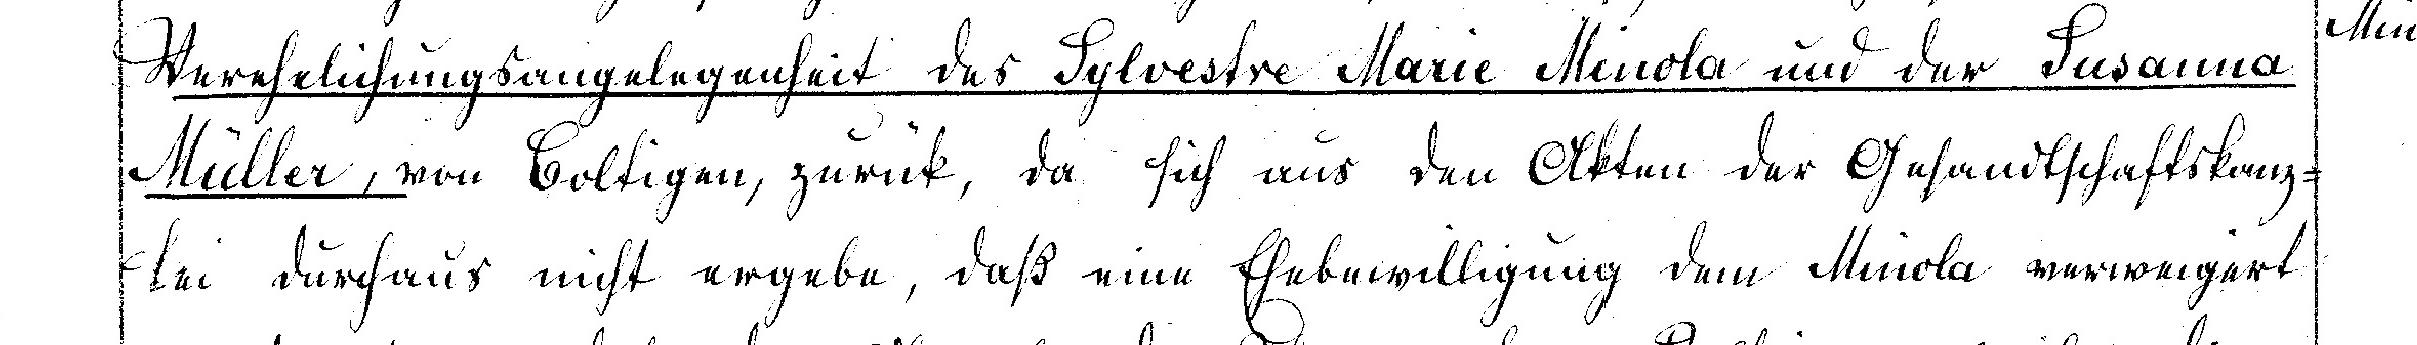 Min
Verehelichungsangelegenheit des Sylvestre Marie Minola und der Susanna
Müller, von Boltigen, zurük, da sich aus den Akten der Gesandtschaftskanz=
lei durchaus nicht ergebe, daß eine Ehebewilligung dem Minola verweigert